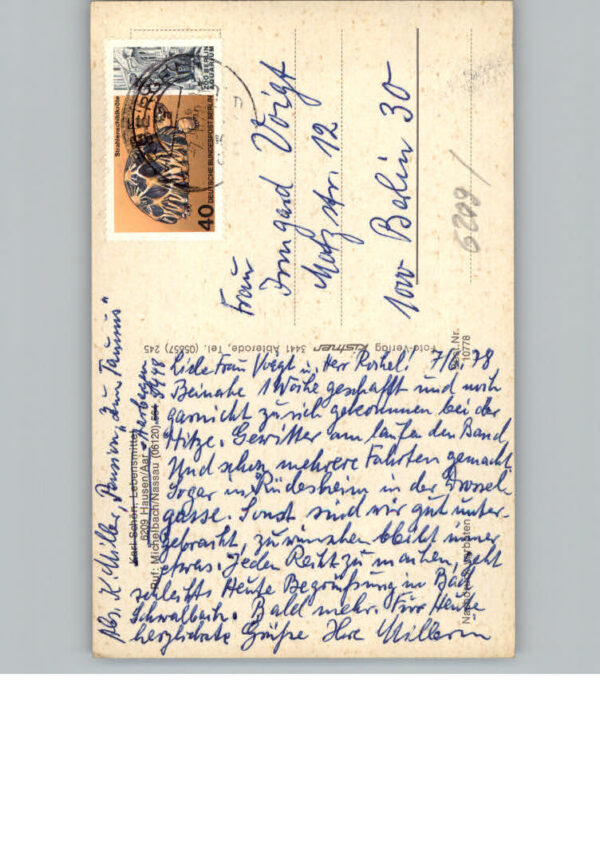 Strahlenschildkröte
40 DEUTSCHE BUNDESPOST BERLIN
ZOO BERLIN
AQUARIUM
Frau
Irmgard Voigt
Motzstr. 12
1000 Berlin 30
6209 /
Foto-Verlag Kistner 3441 Abterode, Tel. (05657) 245
Best.Nr.
10778
Nachdruck verboten
Karl Schön, Lebensmittel
6209 Hausen/Aar
Ruf: Michelbach/Nassau (06120)
Abs. K. Miller, Pension „Zum Taunus"
Liebe Frau Voigt u. Herr 7/6.78
Beinahe 1 Woche geschafft und noch
garnicht zu sich gekommen bei der
Hitze. Gewitter am laufenden Band
Und schon mehrere Fahrten gemacht
Sogar in Rüdesheim in der Drossel-
gasse. Sonst sind wir gut unter-
gebracht, zu wünschen bleibt immer
etwas. Jeden Recht zu machen, geht
schlecht. Heute Begrüßung in Bad
Schwalbach. Bald mehr. Für Heute
herzlichste Grüße Ihre Millerin